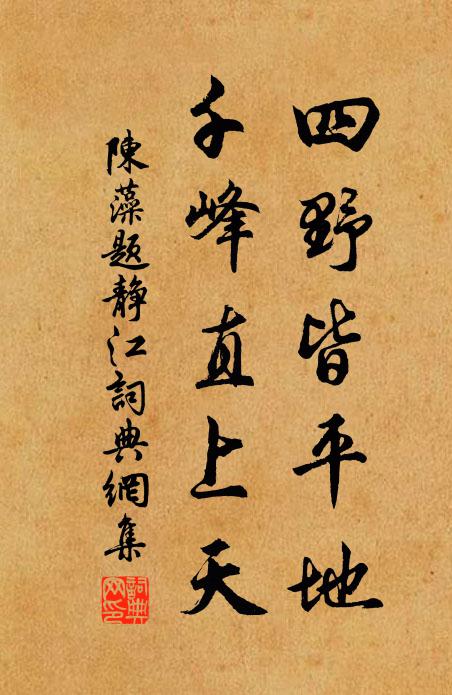 四野皆平地
千峰直上天
陳藻題静江詞典網集
詞典網印